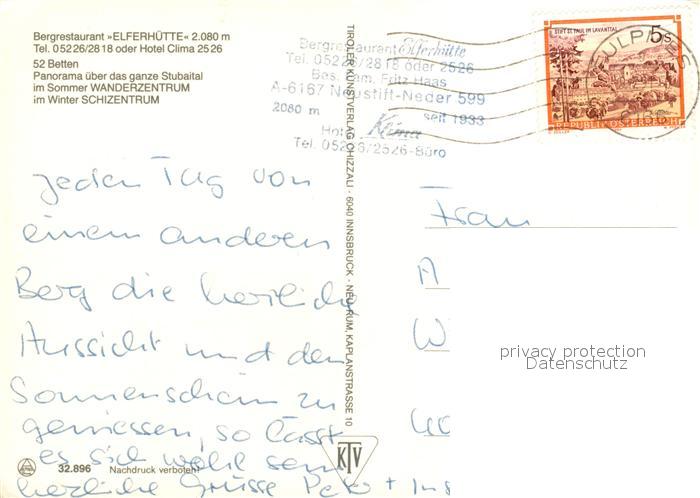 Bergrestaurant »ELFERHÜTTE« 2.080 m
Tel. 05226/2818 oder Hotel Clima 2526
52 Betten
Panorama über das ganze Stubaital
im Sommer WANDERZENTRUM
im Winter SCHIZENTRUM
Bergrestaurant Elferhütte
Tel. 05226/2818 oder 2526
Bes. Fam. Fritz Haas
A-6167 Neustift-Neder 599
2080 m seit 1933
Hotel Klima
Tel. 05226/2526-Büro
STIFT ST. PAUL IM LAVANTTAL
5 S
REPUBLIK ÖSTERREICH
FULPMES
TIROLER KUNSTVERLAG CHIZZALI · 6040 INNSBRUCK - NEU-RUM, KAPLANSTRASSE 10
jeden Tag von
einem anderen
Berg die herrliche
Aussicht und den
Sonnenschein zu
geniessen, so lässt
es sich wohl sein
herzliche Grüsse Peter + Ing
Frau
A
W
privacy protection
Datenschutz
KTV
32.896 Nachdruck verboten!